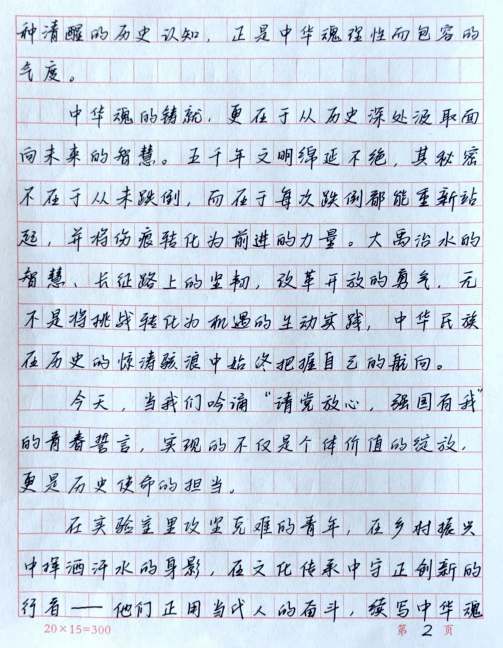 种清醒的历史认知，正是中华魂理性而包容的
气度。
中华魂的铸就，更在于从历史深处汲取面
向未来的智慧。五千年文明绵延不绝，其秘密
不在于从未跌倒，而在于每次跌倒都能重新站
起，并将伤痕转化为前进的力量。大禹治水的
智慧、长征路上的坚韧，改革开放的勇气，无
不是将挑战转化为机遇的生动实践，中华民族
在历史的惊涛骇浪中始终把握自己的航向。
今天，当我们吟诵“请党放心，强国有我”
的青春誓言，实现的不仅是个体价值的绽放，
更是历史使命的担当。
在实验室里攻坚克难的青年，在乡村振兴
中挥洒汗水的身影，在文化传承中守正创新的
行者——他们正用当代人的奋斗，续写中华魂
20×15=300 第 2 页